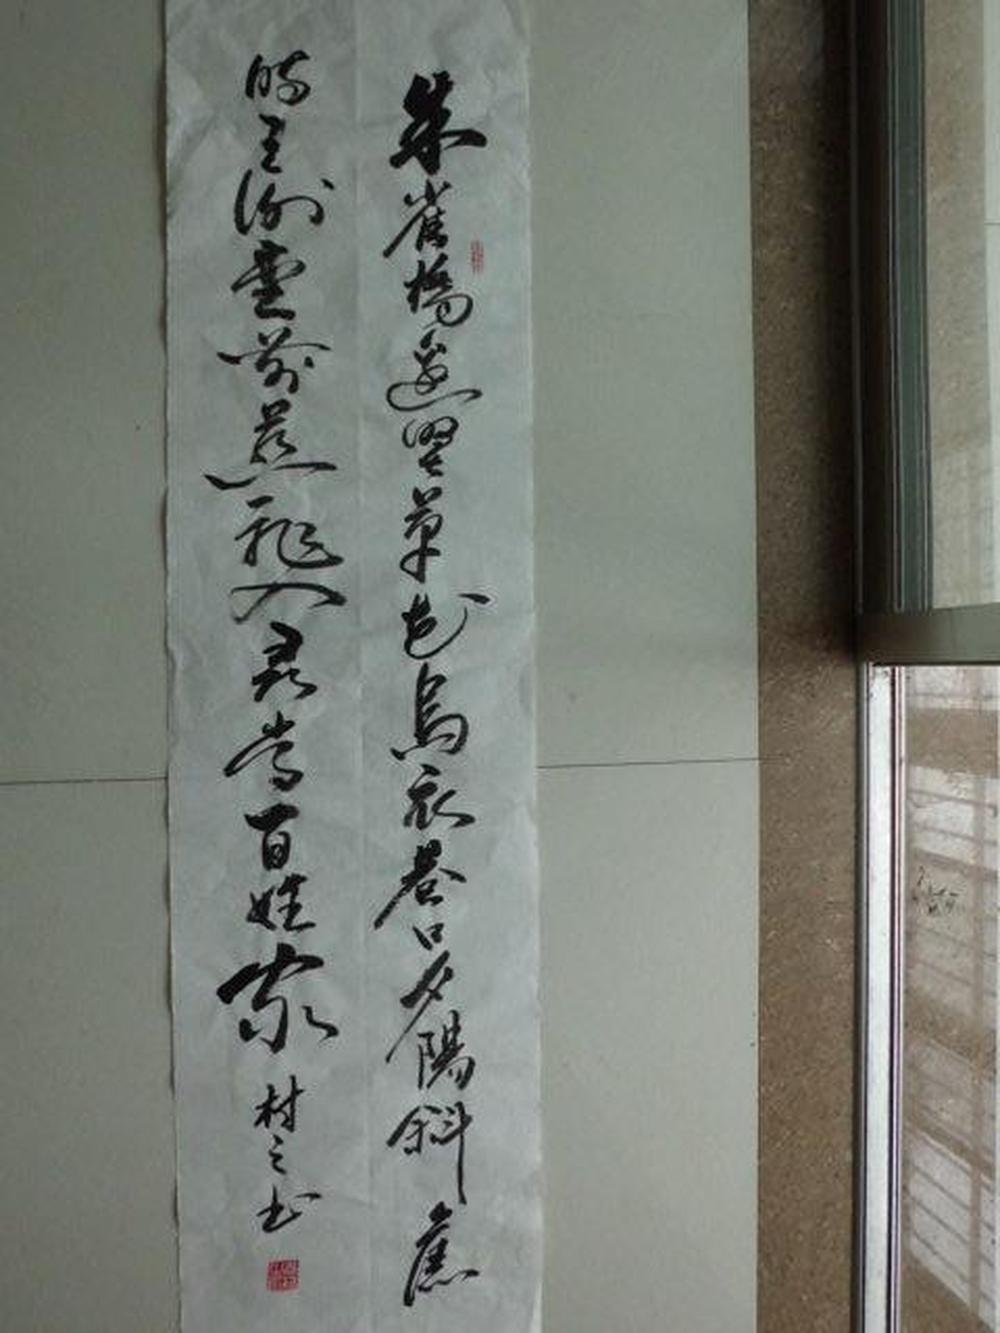 朱雀橋邊野草花烏衣巷口夕陽斜舊
時王謝堂前燕飛入尋常百姓家 村之书